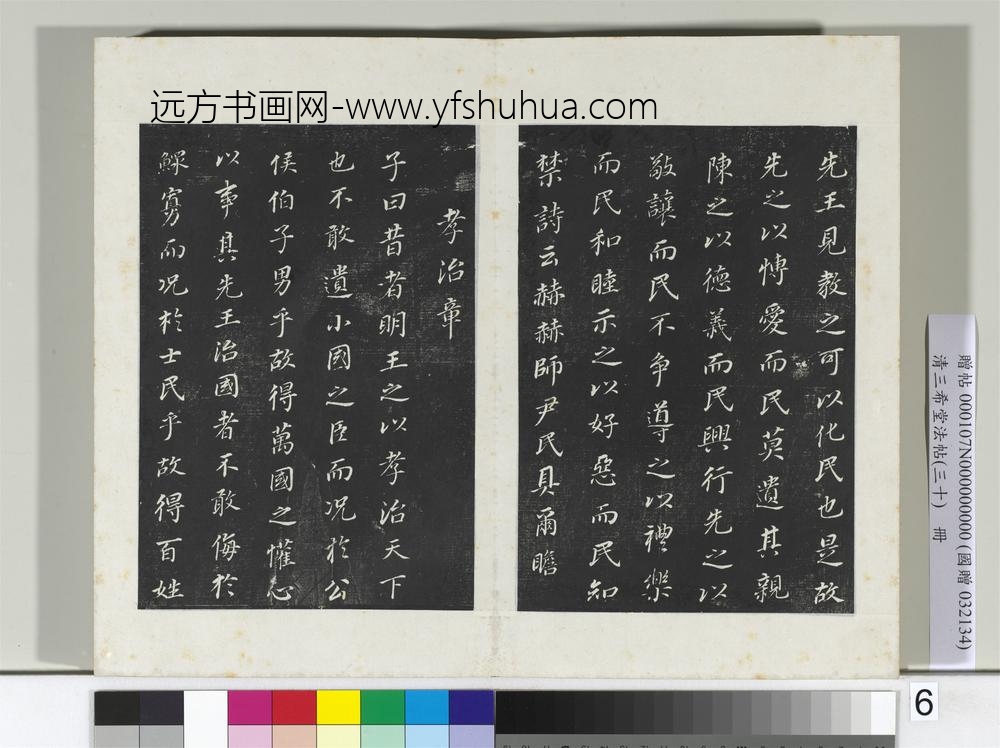 远方书画网-www.yfshuhua.com
先王見教之可以化民也是故
先之以愽愛而民莫遺其親
陳之以德義而民興行先之以
敬讓而民不争導之以禮樂
而民和睦示之以好惡而民知
禁詩云赫赫師尹民具爾瞻
孝治章
子曰昔者明王之以孝治天下
也不敢遺小國之臣而况於公
侯伯子男乎故得萬國之懽心
以事其先王治國者不敢侮於
鰥寡而况於士民乎故得百姓
贈帖 000107N000000000 (國贈 032134)
清三希堂法帖(三十) 冊
6